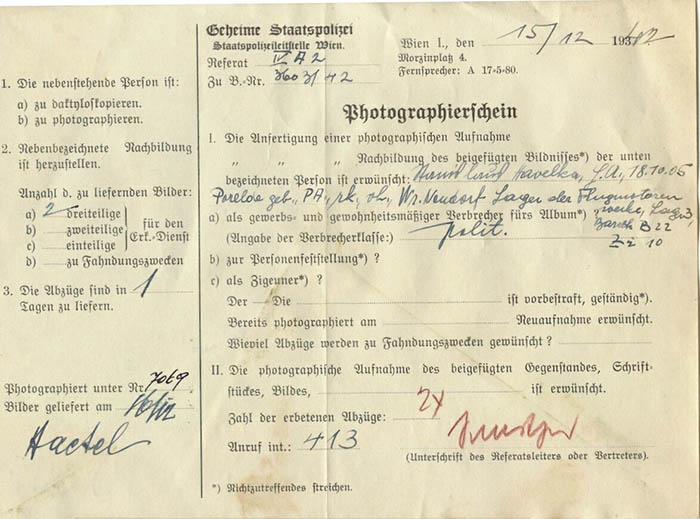 1. Die nebenstehende Person ist:
a) zu daktyloskopieren.
b) zu photographieren.
2. Nebenbezeichnete Nachbildung
ist herzustellen.
Anzahl d. zu liefernden Bilder:
a) 2 dreiteilige
b) zweiteilige
c) einteilige
für den
Erk.-Dienst
d) zu Fahndungszwecken
3. Die Abzüge sind in 1
Tagen zu liefern.
Photographiert unter Nr. 7069
Bilder geliefert am 16/12
Geheime Staatspolizei
Staatspolizeileitstelle Wien.
Referat IV A 2
Zu B.-Nr. 3603/42
Wien I., den 15/12 193
Morzinplatz 4.
Fernsprecher: A 17-5-80.
Photographierschein
I. Die Anfertigung einer photographischen Aufnahme
„ „ „ Nachbildung des beigefügten Bildnisses*) der unten
bezeichneten Person ist erwünscht: Havelka, 18.10.05
geb., PA, rk., Wr. Neudorf Lager der Flugmotoren
werke, Lag. 3,
a) als gewerbs- und gewohnheitsmäßiger Verbrecher fürs Album*)
B 22
(Angabe der Verbrecherklasse:) polit.
10
b) zur Personenfeststellung*) ?
c) als Zigeuner*) ?
Der — Die ist vorbestraft, geständig*).
Bereits photographiert am Neuaufnahme erwünscht.
Wieviel Abzüge werden zu Fahndungszwecken gewünscht ?
II. Die photographische Aufnahme des beigefügten Gegenstandes, Schrift-
stückes, Bildes, ist erwünscht.
Zahl der erbetenen Abzüge: 2x
Anruf int.: 413
(Unterschrift des Referatsleiters oder Vertreters).
*) Nichtzutreffendes streichen.